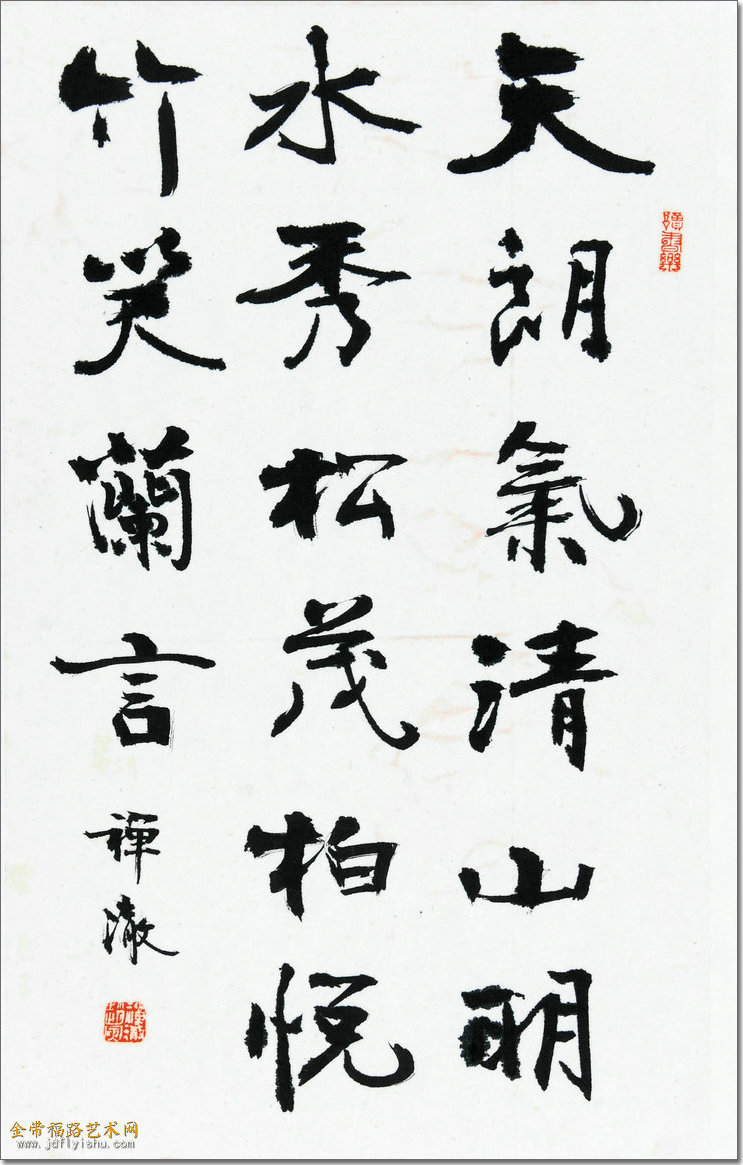 天朗氣清山明
水秀松茂柏悦
竹笑蘭言
禅澈
金带福路艺术网
www.jdflyishu.com